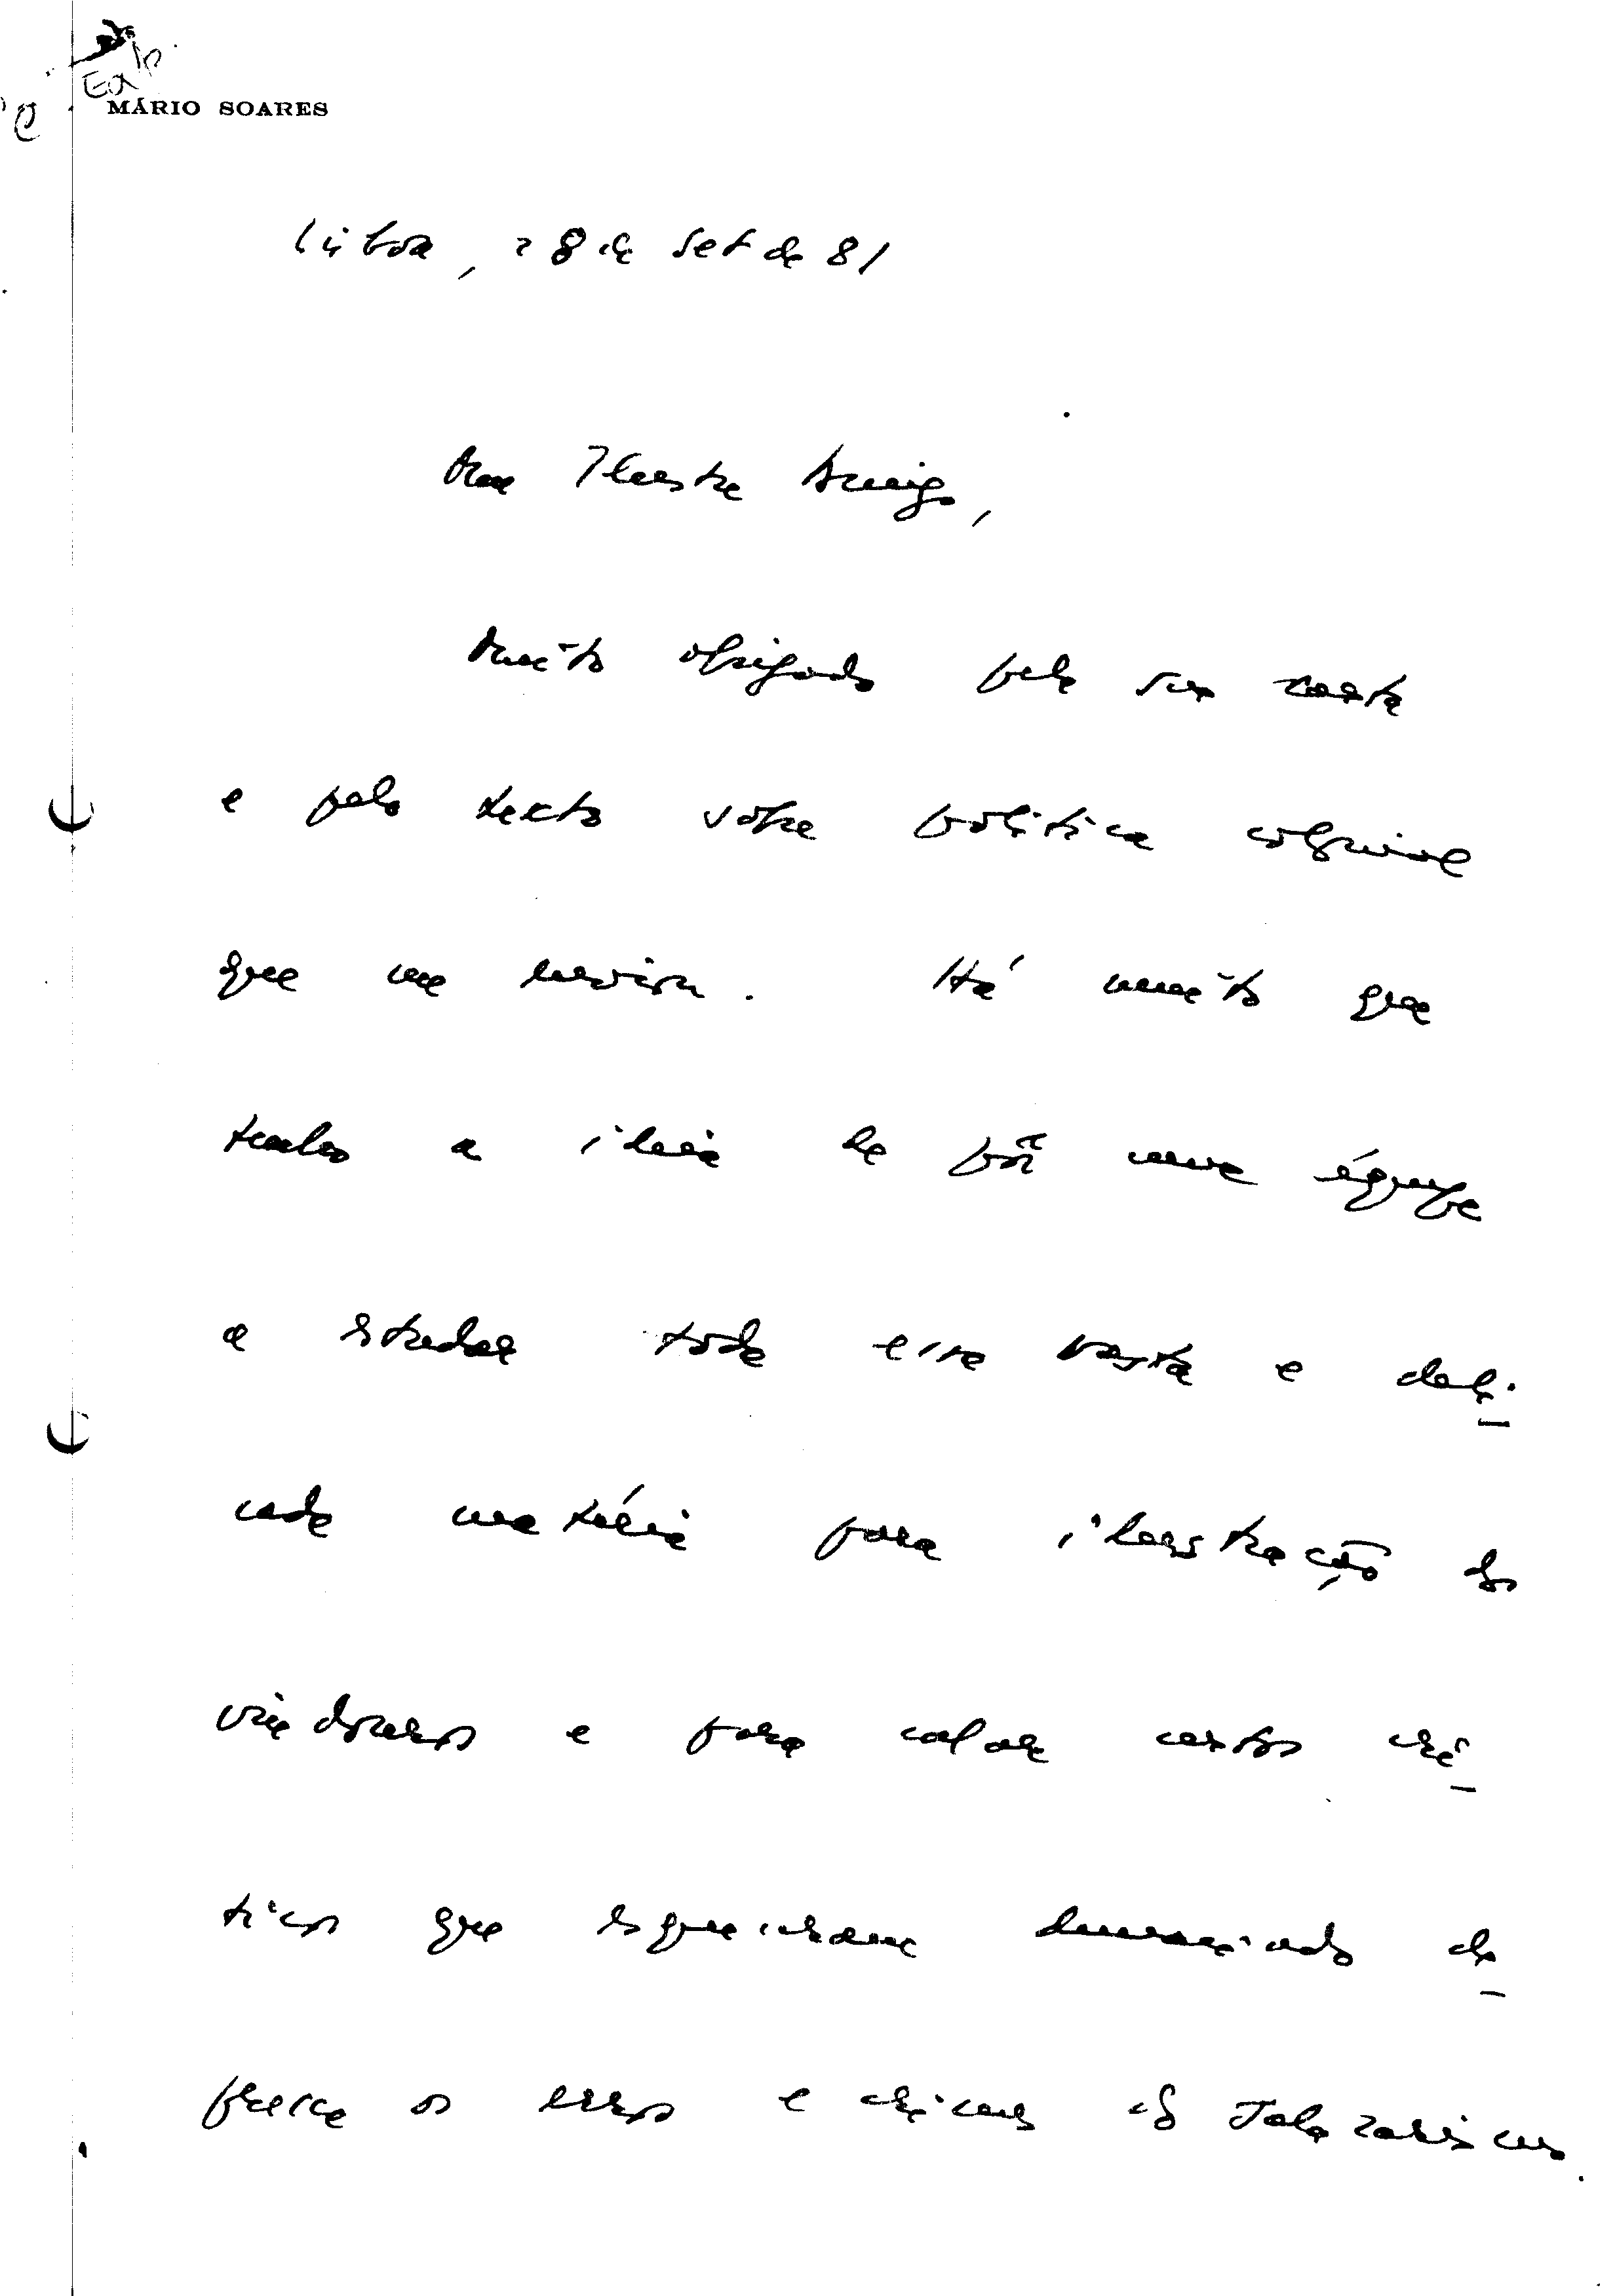 MÁRIO SOARES
Lisboa, 28 de Set de 81
Meu Ilustre Amigo,
Muito obrigado pela sua carta
e pelo texto sobre política colonial
que me enviou. Há muito que
tenho a ideia de pôr uma équipe
a estudar toda essa vasta e deli-
cada matéria para ilustração dos
vindouros e para calar certos crí-
ticos que esqueceram demasiado de-
pressa os erros e crimes do Salazarismo.